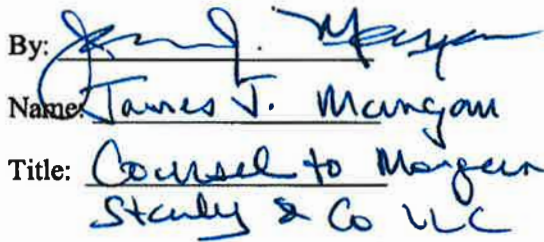 By: James J. Mangan
Name: James J. Mangan
Title: Counsel to Morgan
Stanley & Co LLC